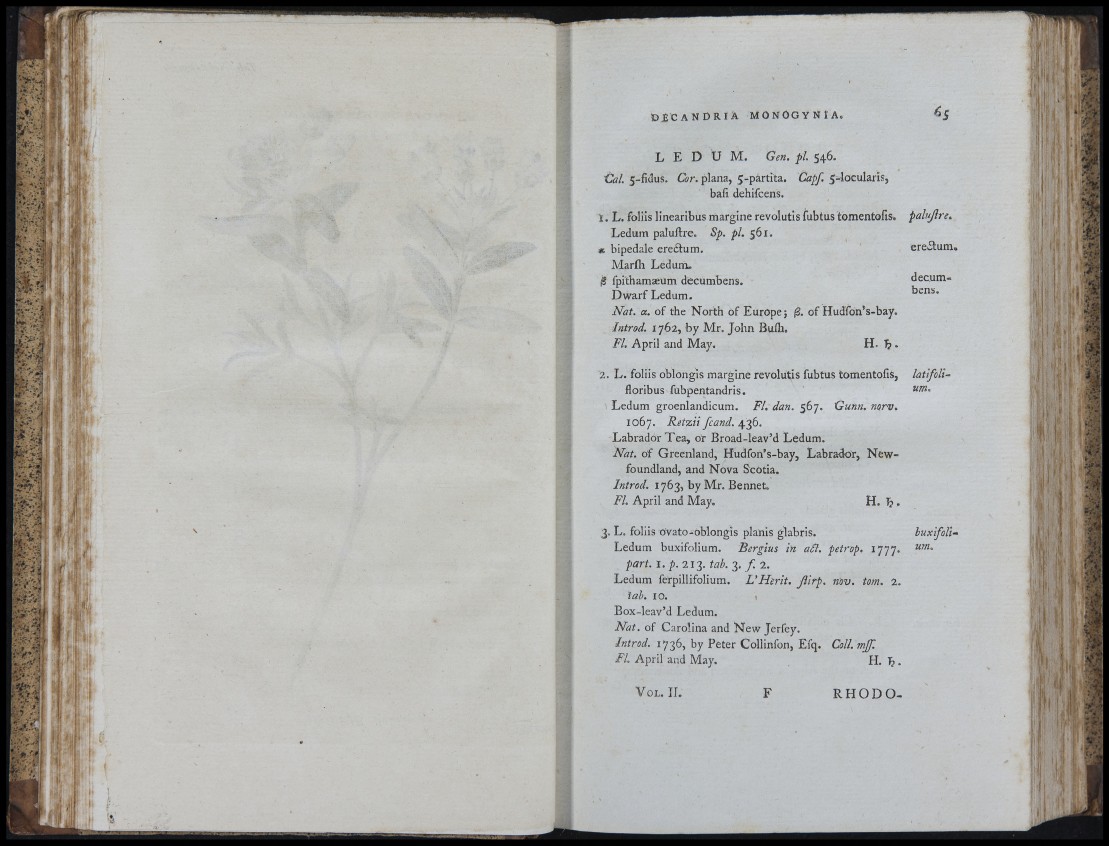 DECANDRIA MONOGYNIA. 65
LEDUM. Gen. pl. 546.
Cal. 5-fidus. Cor. plana, 5-partita. Capſ. 5-locularis,
baſi dehiſcens.
1. L. foliis linearibus margine revolutis ſubtus tomentoſis. paluſtre.
Ledum paluſtre. Sp. pl. 561.
α bipedale erectum. erectum.
Marſh Ledum.
β ſpithamæum decumbens. decum-
bens.
Dwarf Ledum.
Nat. α. of the North of Europe; β. of Hudſon's-bay.
Introd. 1762, by Mr. John Buſh.
Fl. April and May. H. ♄.
2. L. foliis oblongis margine revolutis ſubtus tomentoſis, latifoli-
floribus ſubpentandris. um.
Ledum groenlandicum. Fl. dan. 567. Gunn. norv.
1067. Retzii ſcand. 436.
Labrador Tea, or Broad-leav'd Ledum.
Nat. of Greenland, Hudſon's-bay, Labrador, New-
foundland, and Nova Scotia.
Introd. 1763, by Mr. Bennet.
Fl. April and May. H. ♄.
3. L. foliis ovato-oblongis planis glabris. buxifoli-
Ledum buxifolium. Bergius in act. petrop. 1777. um.
part. 1. p. 213. tab. 3. f. 2.
Ledum ſerpillifolium. L'Herit. ſtirp. nov. tom. 2.
tab. 10.
Box-leav'd Ledum.
Nat. of Carolina and New Jerſey.
Introd. 1736, by Peter Collinſon, Eſq. Coll. mſſ.
Fl. April and May. H. ♄.
VOL. II. F RHODO-